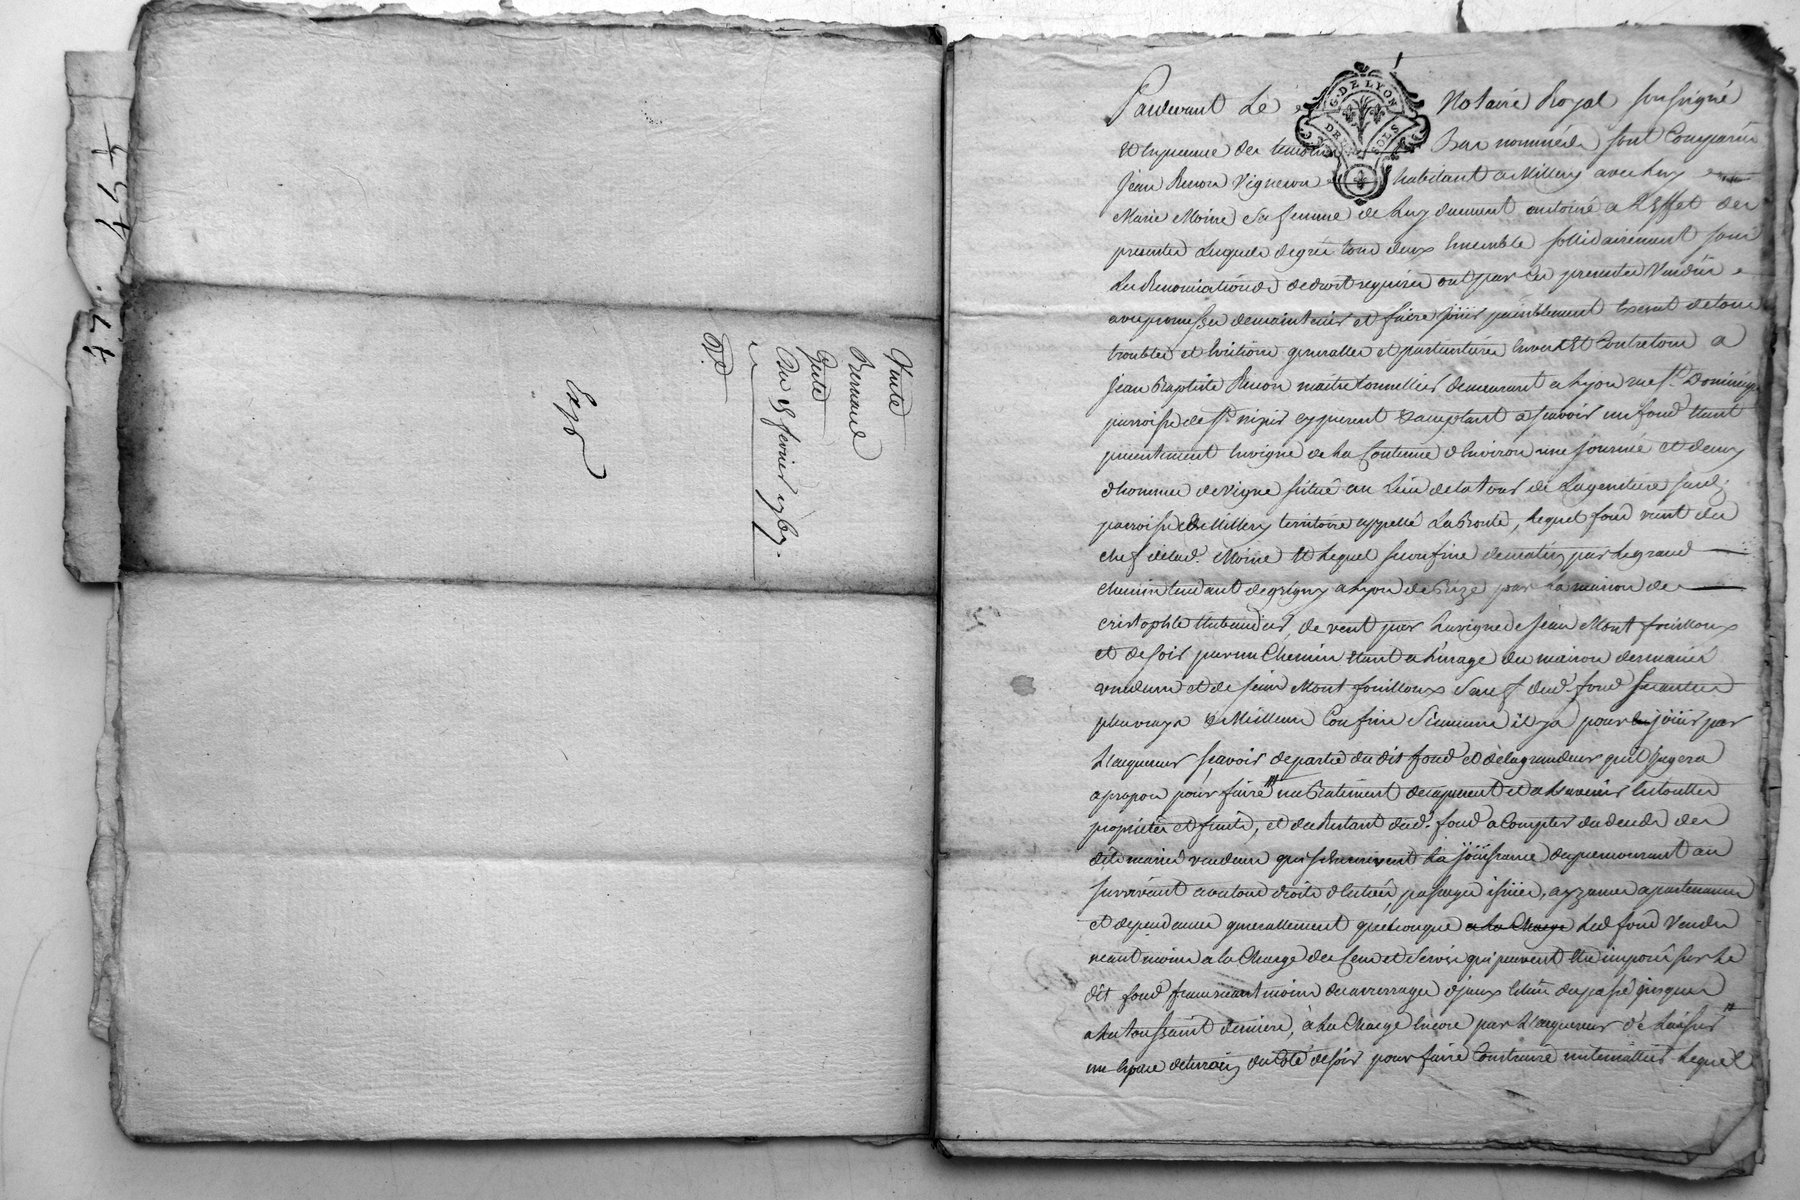 Vente
Renaud
Du 5 fevrier 1763.
Exp
Pardevant Le Notaire Royal soussigné
G. DE LYON
DEUX SOLS
Et En presence des temoins Bas nommés sont Comparus
Jean Renon Vigneron habitant a Millery avec luy
Marie Moine Sa femme de luy duement autorisé a L'Effet des
presentes Lesquels de gré tous deux Ensemble sollidairement sous
Les Renonciations de droit requises ont par Les presentes Vendu
avec promesse de maintenir et faire jöüir paisiblement Exemt de tous
troubles et Evictions generalles et particulieres Envers Et Contre tous a
Jean Baptiste Renon maitre tonnellier demeurant a Lyon rue St. Dominique
parroisse de St. nizier cy present Et acceptant a sçavoir un fond Etant
presentement En vigne de La Contenue d'Environ une journée et demy
d'hommes de vigne situé au Lieu de la tour de
parroisse de Millery territoire appellé La Route, Lequel fond vient du
chef de lad. Moine Et Lequel se confine de matin par Le grand
chemin tendant de grigny a Lyon de Bize par La maison de
Cristophle de vent par La vigne de Jean Montfouilloux
et de soir par un Chemin Etant a L'usage des maison des mariés
vendeurs et de Jean Montfouilloux Sauf dud. fond
plus vrays Et Meilleurs Confins Si aucuns il y a pour en jöüir par
L'acquereur sçavoir de partie du dit fond et de la grandeur qu'il jugera
a propos pour faire un Batiment des a present et a L'avenir En toutte
proprieté et fruits, et du Restant dud. fond a Compter du deceds des
dits mariés vendeurs qui s'En reservent La jöüissance du premourant au
survivant avec tous droits d'Entrées, passages issües, ayzances apartenances
et dependances generallement quelconques a la Charge Led. fond Vendu
neantmoins a la Charge des Cens et Servis qui peuvent Etre imposés sur Le
dit fond franc neantmoins des arrerages d'jceux Echûs du passé jusques
a La toussaint derniere, à La Charge Encore par L'acquereur de Laisser
un Espace de terrain du Coté de soir pour faire Construire un Lequel